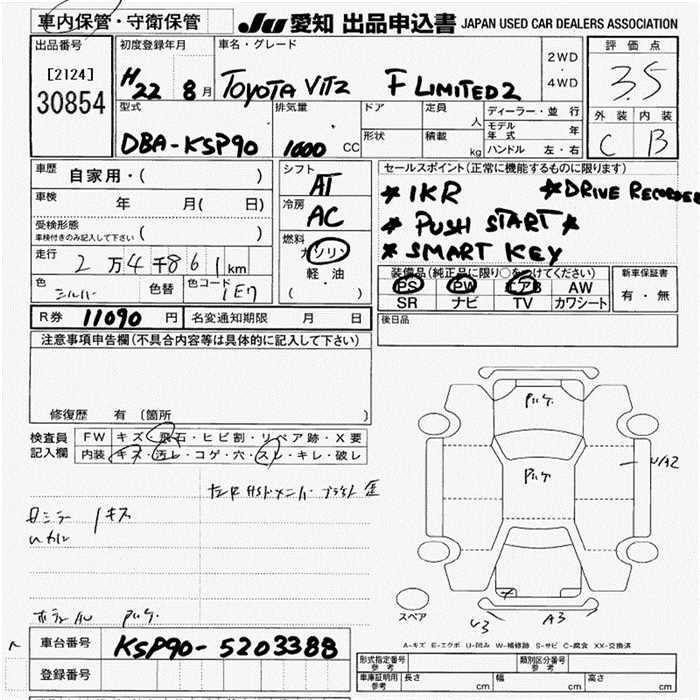 車内保管・守衛保管
JU 愛知 出品申込書 JAPAN USED CAR DEALERS ASSOCIATION
出品番号
[2124]
30854
初度登録年月
H 22 8 月
車名・グレード
TOYOTA VITZ F LIMITED2
2WD
・
4WD
評価点
3.5
外装 内装
C B
型式
DBA-KSP90
排気量
1000 CC
ドア
形状
定員 人
積載 kg
ディーラー・並行
モデル年式 年
ハンドル 左・右
車歴
自家用・( )
車検 年 月( 日)
受検形態
車検付きのみ記入して下さい ( )
走行 2 万 4 千 8 6 1 km
色 シルバー 色替 色コード 1E7
シフト
AT
冷房
AC
燃料
ガソリン・
軽油
( )
セールスポイント(正常に機能するものに限ります)
* 1KR * DRIVE RECORDER
* PUSH START *
* SMART KEY
装備品(純正品に限り○をつけてください)
PS PW エアB AW
SR ナビ TV カワシート
新車保証書
有・無
R券 11090 円 名変通知期限 月 日
後日品
注意事項申告欄(不具合内容等は具体的に記入して下さい)
修復歴 有 (箇所 )
検査員
記入欄
FW キズ・飛石・ヒビ割・リペア跡・X要
内装 キズ・汚レ・コゲ・穴・スレ・キレ・破レ
キズ
スペア
U3 A3
A-キズ E-エクボ U-凹み W-補修跡 S-サビ C-腐食 XX-交換済
車台番号 KSP90-5203388
登録番号
形式指定番号
参考
類別区分番号
参考
車庫証明用
参考
長さ cm 幅 cm 高さ cm